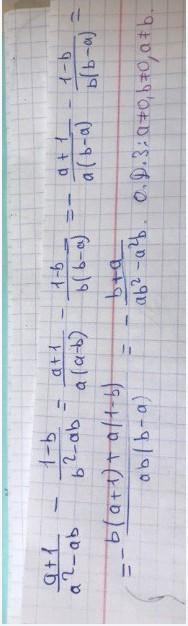 \frac{a+1}{a^2-ab} - \frac{1-b}{b^2-ab} = \frac{a+1}{a(a-b)} - \frac{1-b}{b(b-a)} = -\frac{a+1}{a(b-a)} - \frac{1-b}{b(b-a)} =
= \frac{-b(a+1)+a(1-b)}{ab(b-a)} = -\frac{b+a}{ab^2-a^2b}. О.Д.З: a≠0, b≠0, a≠b.